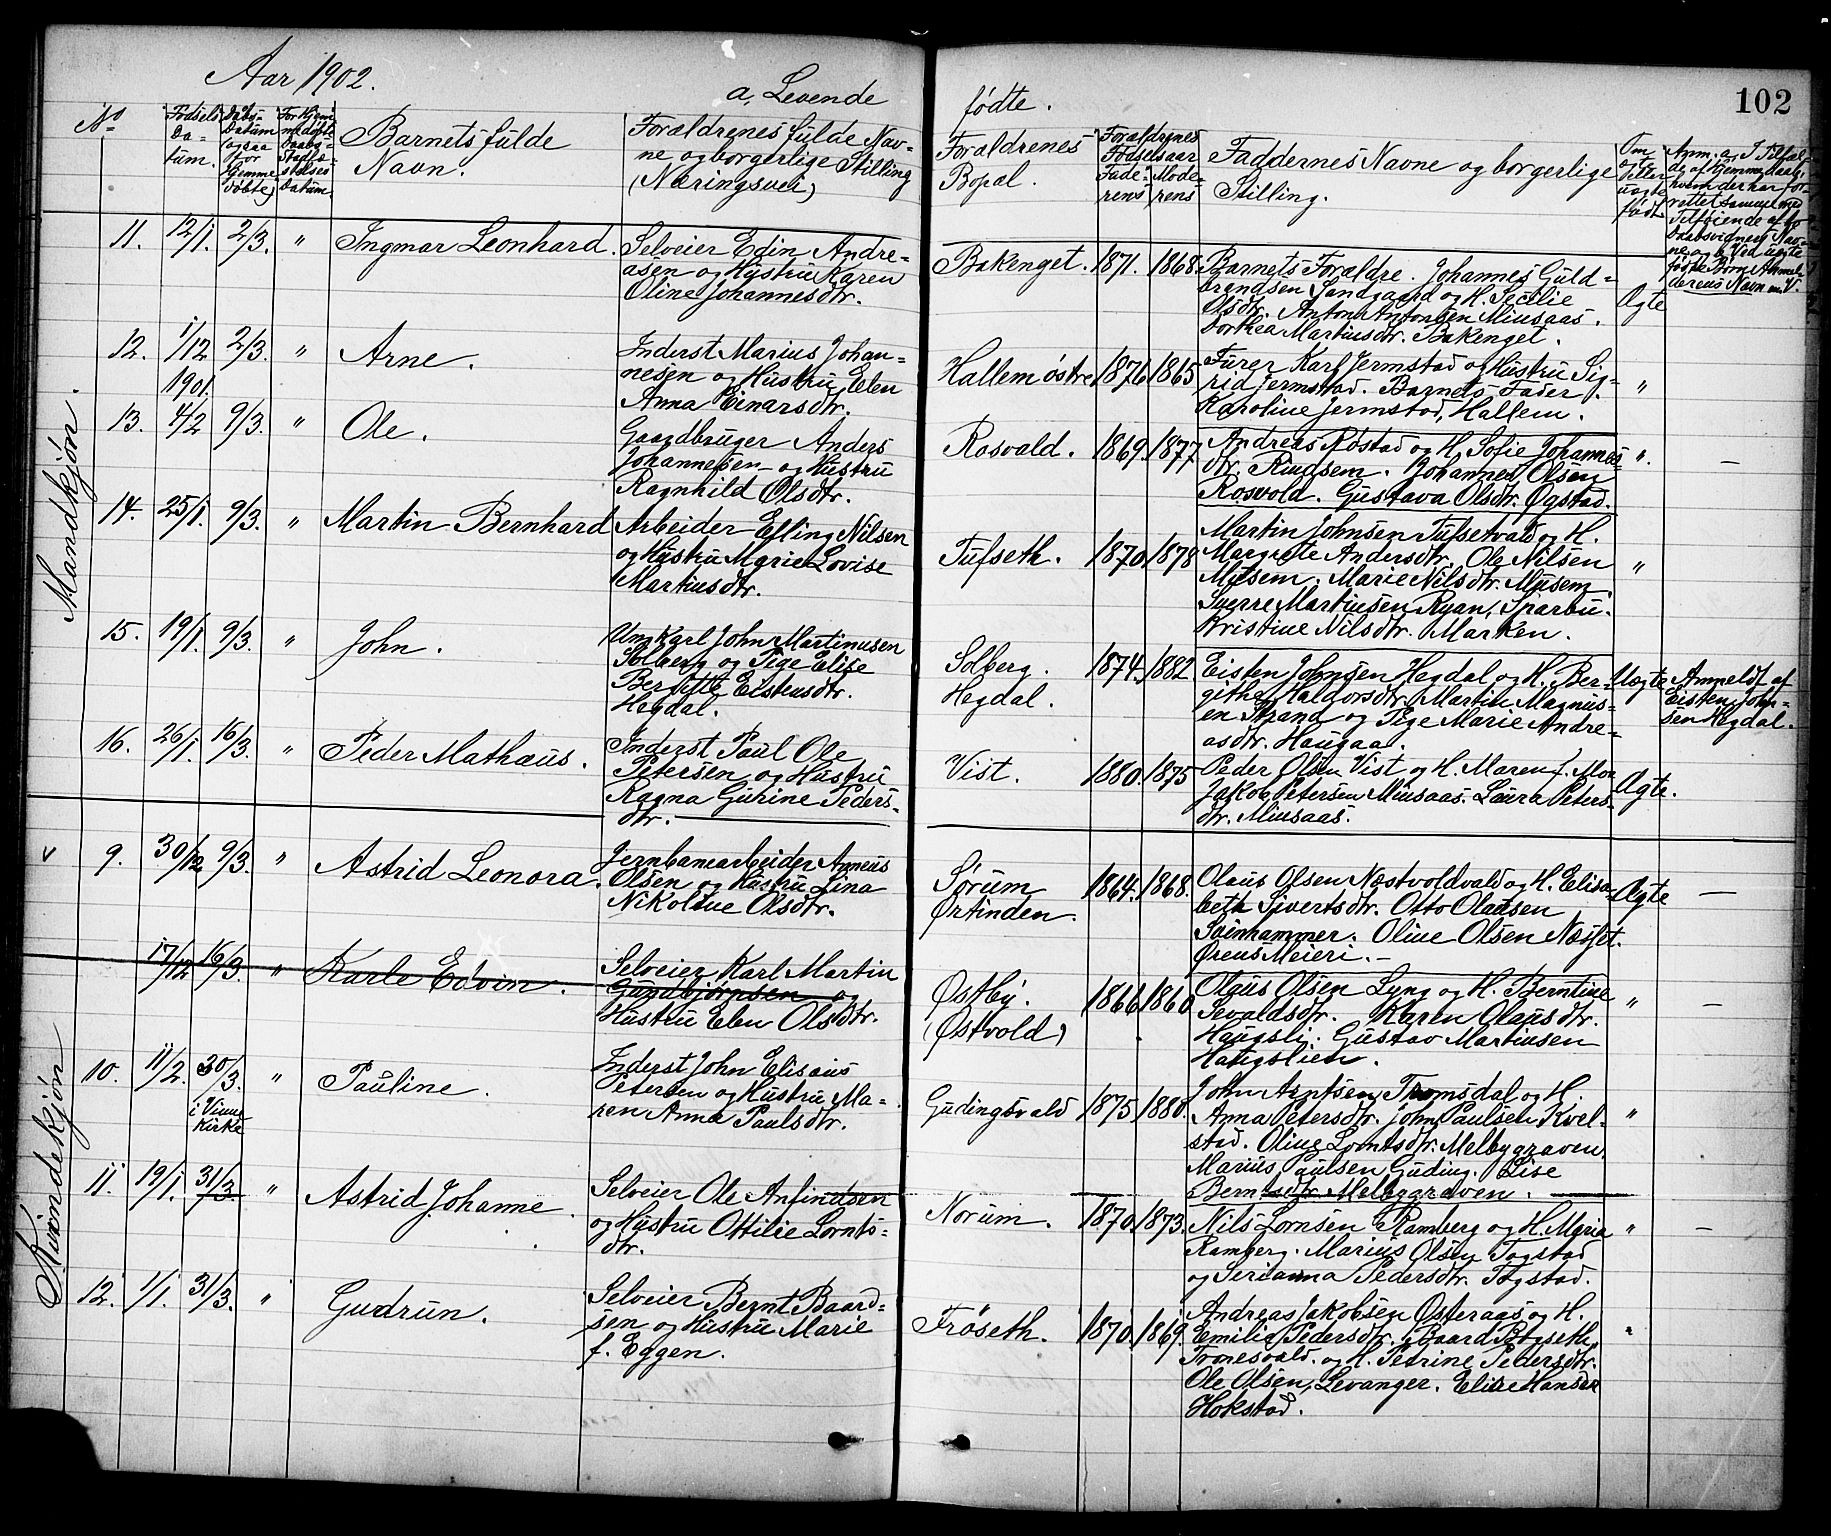 Aar 1902.
a, Levende
fødte.
102
No
Fødsels
Da-
tum.
Daabs
Datum
(ogsaa
for
Hjemme
døbte)
For Hjem
medøbte
Daabs
Stadfæ-
stelses
Datum.
Barnets fulde
Navn.
Forældrenes fulde Nav-
ne og borgerlige Stilling
(Næringsvei)
Forældrenes
Bopæl.
Forældrenes
Fødselsaar
Fade-
rens
Mode-
rens
Faddernes Navne og borgerlige
Stilling.
Om
ægte
eller
uægte
født.
Anm. a, I Tilfæl-
de af Hjemmedaab,
hvem der har for-
rettet samme med
Tilføiende af to
Daabsvidners Nav-
ne og b, Ved uægte
fødte Børn Anmel-
derens Navn m. V.
Mandkjøn.
11. 12/1. 2/3. " Ingmar Leonhard.
Selveier Edin Andre-
asen og Hustru Karen
Oline Johannesdtr.
Bakenget. 1871. 1868
Barnets Forældre. Johannes Guld-
brandsen Sandgaard og H. Secilie
Olsdtr. Anton Antonsen Minsaas.
Dorthea Martinsdtr. Bakenget.
Ægte
12. 1/12 2/3. " Arne.
1901.
Inderst Marius Johan-
nesen og Hustru Elen
Anna Einarsdtr.
Hallem østre 1876 1865
Furer Karl Jermstad og Hustru Sig-
rid Jermstad. Barnets Fader.
Karoline Jermstad, Hallem.
"
13. 4/2 9/3. " Ole.
Gaardbruger Anders
Johannessen og Hustru
Ragnhild Olsdtr.
Rosvald. 1869. 1877
Andreas Røstad og H. Sofie Johannes-
dtr. Rindsem. Johannes Olsen
Rosvold. Gustava Olsdtr. Øgstad.
". —
14. 25/1. 9/3. " Martin Bernhard
Arbeider Elling Nilsen
og Hustru Marie Lovise
Martinsdtr.
Tufseth. 1870. 1878
Martin Johnsen Tufsetvald og H.
Margrete Andersdtr. Ole Nilsen
Musem. Marie Nilsdtr. Musem
Sverre Martinsen Ryan, Sparbu.
Kristine Nilsdtr. Marken.
"
15. 19/1. 9/3. " John.
Ungkarl John Martinusen
Solberg og Pige Elise
Bergitte Eistensdtr.
Hegdal.
Solberg.
Hegdal. 1874. 1882
Eisten Johnsen Hegdal og H. Ber-
githa Haldorsdtr. Martin Magnus-
en Strand og Pige Marie Andre-
asdtr. Haugaa.
Uægte Anmeldt af
Eisten John-
sen Hegdal.
16. 26/1. 16/3. " Peder Mathæus.
Inderst Paul Ole
Petersen og Hustru
Ragna Gurine Peders-
dtr.
Vist. 1880. 1875
Peder Olsen Vist og H. Maren f. Moe
Jakob Petersen Minsaas. Laura Peters-
dtr. Minsaas.
Ægte.
Kvindekjøn
v 9. 30/12 9/3. " Astrid Leonora.
Jernbanearbeider Anneus
Olsen og Hustru Lina
Nikoline Olsdtr.
Sørum
Ørtinden. 1864. 1868.
Olaus Olsen Næstvoldvald og H. Elisa-
beth Sivertsdtr. Otto Olausen
Svinhammer. Oline Olsen Næsset.
Ørens Meieri.
Ægte —
17/12 16/3. " Karle Edvin.
Selveier Karl Martin
Gundbjørnsen og
Hustru Elen Olsdtr.
Østby.
(Østvold) 1866 1860
Olaus Olsen Lyng og H. Berntine
Sevaldsdtr. Karen Olausdtr.
Haugsli. Gustav Martinsen
Haugslien.
" —
10. 11/2. 30/3. " Pauline.
i Vinne
Kirke
Inderst John Elisæus
Petersen og Hustru Ma-
ren Anna Paulsdtr.
Gudingsvald 1875 1880.
John Arntsen Tromsdal og H.
Anna Petersdtr. John Paulsen Kvel-
stad. Oline Lorntsdtr. Melbygraven.
Marius Paulsen Guding. Lise
Berntsdtr. Melbygraven.
"
11. 19/1. 31/3. " Astrid Johanne.
Selveier Ole Anfindsen
og Hustru Ottilie Lornts-
dtr.
Norum. 1870. 1873.
Nils Lornsen Ramberg og H. Maria
Ramberg. Marius Olsen Togstad
og Serianna Pedersdtr. Togstad.
" —
12. 1/1. 31/3. " Gudrun.
Selveier Bernt Baard-
sen og Hustru Marie
f. Eggen.
Frøseth. 1870. 1869.
Andreas Jakobsen Østeraas og H.
Emilie Pedersdtr. Baard
Tronesvald. og H. Petrine Pedersdtr.
Ole Olsen, Levanger. Elise Hansen
Hokstad.
"